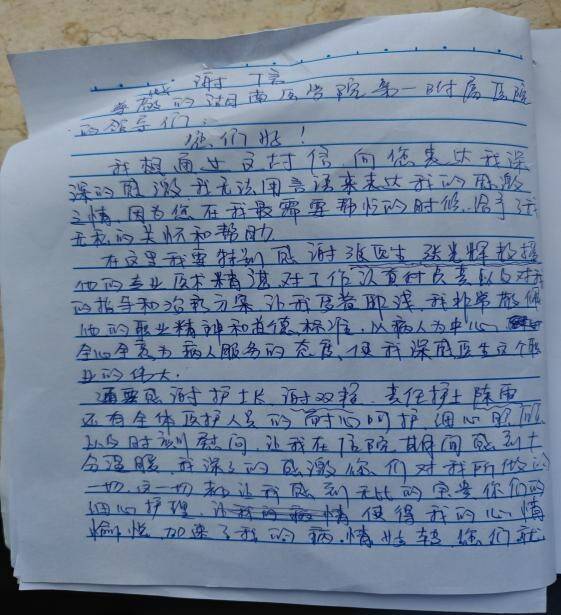 感谢信
尊敬的湖南医学院第一附属医院
的领导们:
您们好!
我想通过这封信,向您表达我深
深的感激,我无法用言语来表达我的感激
之情,因为您在我最需要帮忙的时候,给予了我
无私的关怀和帮助。
在这里我要特别感谢张医生,张光辉教授
他的专业技术精湛,对工作认真负责以及对我
的指导和治疗方案,让我受益,我非常敬佩
他的职业精神和道德标准,以病人为中心
全心全意为病人服务的态度,使我深感医生这个职
业的伟大。
感谢护士长,谢双,责任护士陈雨
还有全体医护人员的耐心呵护,细心照顾
以及时刻慰问,让我在住院其间感到十
分温暖,我深深的感激你们对我所做的
一切,这一切都让我感到无比的宝贵你们的
细心护理,让我的病情使得我的心情
愉悦,加速了我的病情好转,您们就